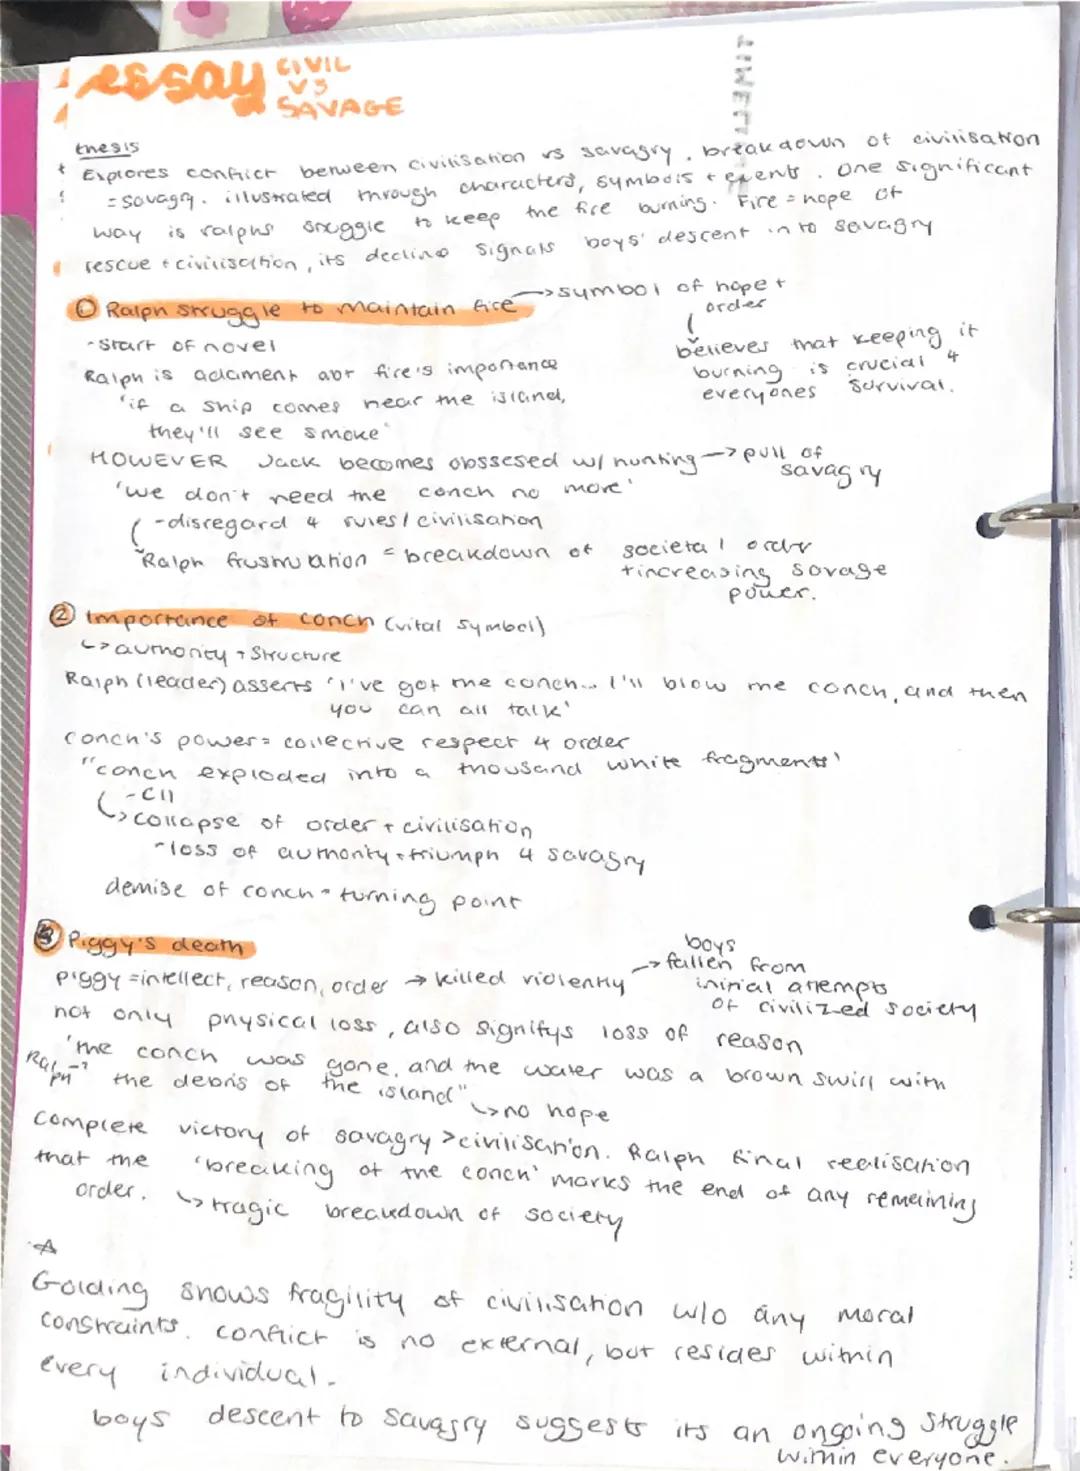 essay CIVIL
VS
SAVAGE
thesis
Explores conflict between civilisation vs savagry, breakdown of civilisation
= savagry. illustrated through characters, symbols + events. One significant
way is ralphs struggle to keep the fire burning. Fire = hope of
rescue + civilisation, its decline signals boys' descent into savagry
① Ralph struggle to maintain fire → symbol of hope +
order
- start of novel
believes that keeping it
burning is crucial 4
everyones survival.
Ralph is adament abt fire's importance
'if a ship comes near the island,
they'll see smoke'
HOWEVER Jack becomes obssesed w/ hunting → pull of
savagry
'we don't need the conch no more'
- disregard 4 rules / civilisation
Ralph frustration = breakdown of societal order
+ increasing savage
power.
② Importance of conch (vital symbol)
↳ authority + structure
Ralph (leader) asserts 'I've got the conch... I'll blow the conch, and then
you can all talk'
conch's power = collective respect 4 order
"conch exploded into a thousand white fragments'
- C11
↳ collapse of order + civilisation
- loss of authority + triumph 4 savagry
demise of conch = turning point
③ Piggy's death
piggy = intellect, reason, order → killed violently → boys
fallen from
initial attempts
of civilized society
not only physical loss, also signifys loss of reason
'the conch was gone, and the water was a brown swirl with
Ralph → the debris of the island"
↳ no hope
complete victory of savagry > civilisation. Ralph final realisation
that the 'breaking of the conch' marks the end of any remaining
order. ↳ tragic breakdown of society
Golding shows fragility of civilisation w/o any moral
constraints. conflict is no external, but resides within
every individual.
boys descent to savagry suggests its an ongoing struggle
within everyone.